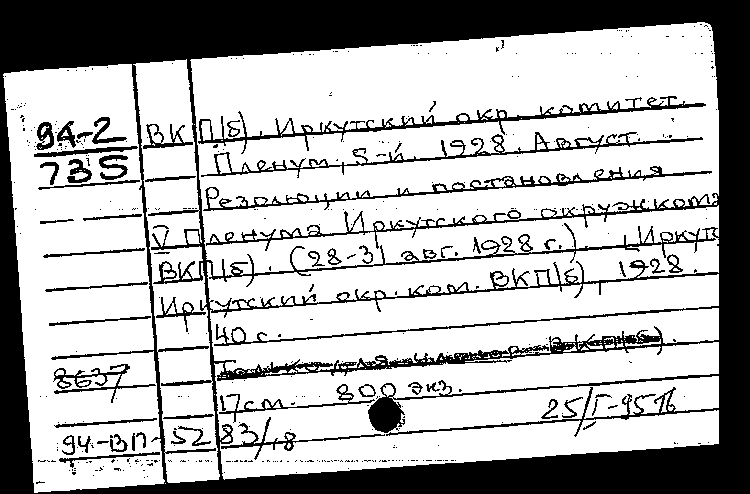 94-2 ВКП(б). Иркутский окр. комитет.
735 Пленум, 5-й. 1928. Август.
Резолюции и постановления
V Пленума Иркутского окружкома
ВКП(б). (28-31 авг. 1928 г.). [Иркут
Иркутский окр. ком. ВКП(б), 1928.
40 с.
8637 Только для членов ВКП(б).
17 см. 800 экз.
94-ВП-52 83/,8 25/I-95